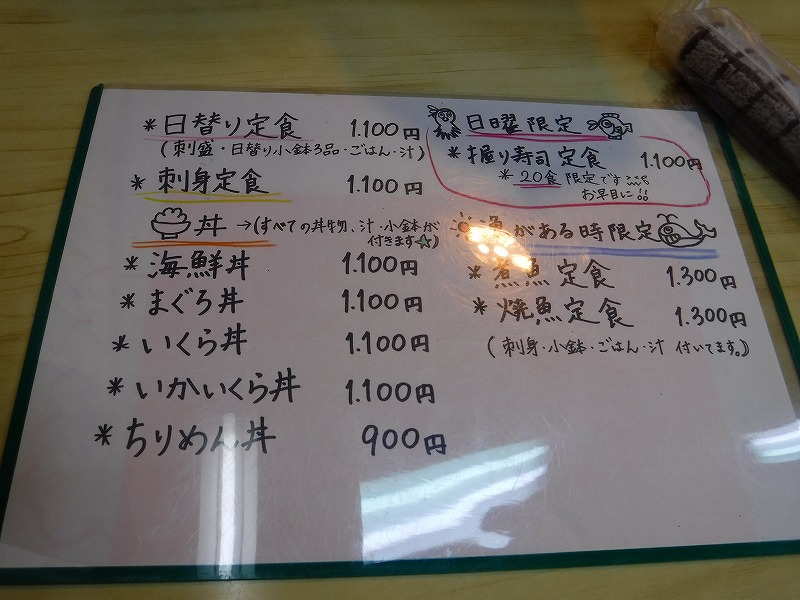 *日替り定食 1.100円
(刺盛・日替り小鉢3品・ごはん・汁)
*刺身定食 1.100円
丼→(すべての丼物、汁・小鉢が
付きます☆)
*海鮮丼 1.100円
*まぐろ丼 1.100円
*いくら丼 1.100円
*いかいくら丼 1.100円
*ちりめん丼 900円
日曜限定
*握り寿司定食 1.100円
*20食限定です
お早目に!!
がある時限定
*煮魚定食 1.300円
*焼魚定食 1.300円
(刺身・小鉢・ごはん・汁 付いてます。)